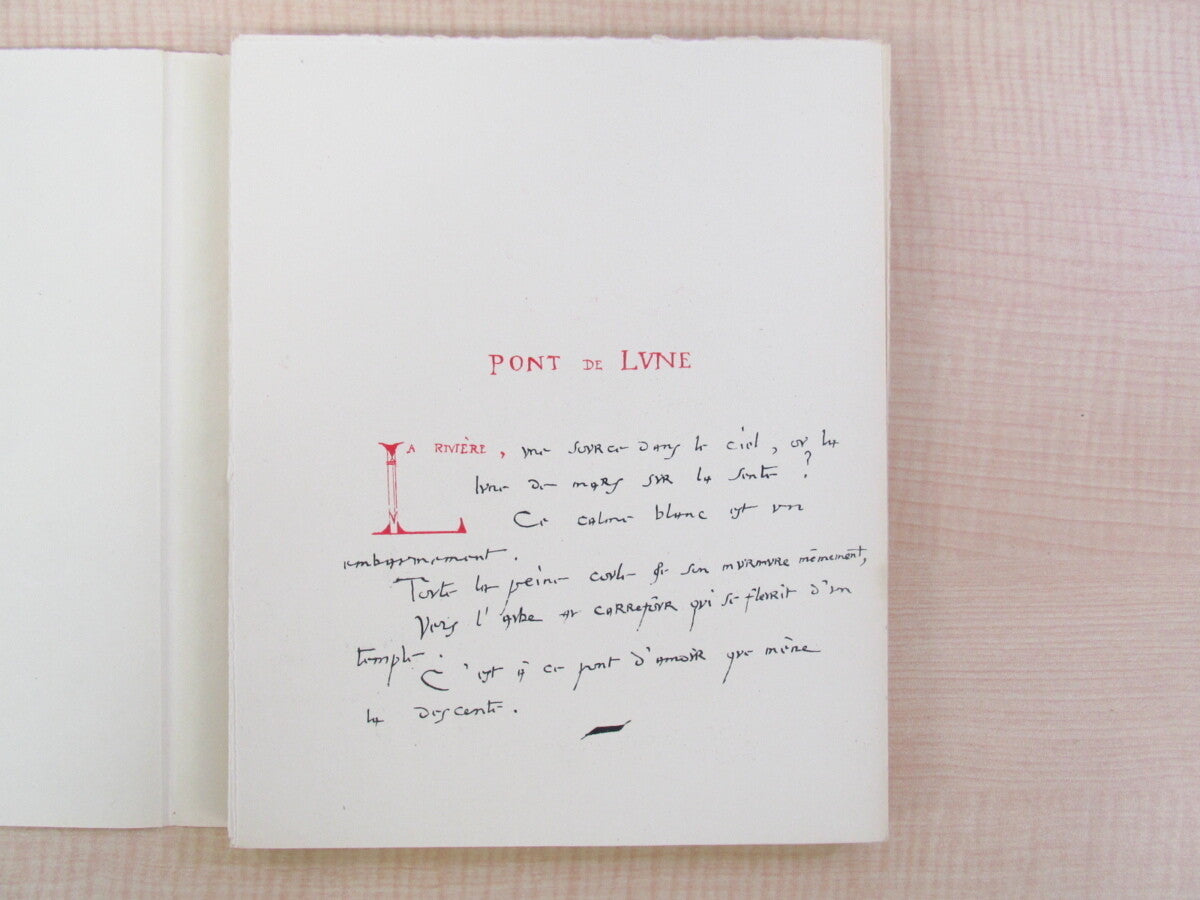 PONT DE LVNE
LA RIVIÈRE, vne sovrce dans le ciel, ov la
lvne de mars svr la sente ?
Ce calme blanc est vn
embarnement.
Tovte la peine covle de son mvrmvre mêmement,
Vers l'avbe av carrefovr qvi se flevrit d'vn
temple.
C'est à ce pont d'amovr qve mène
la descente.